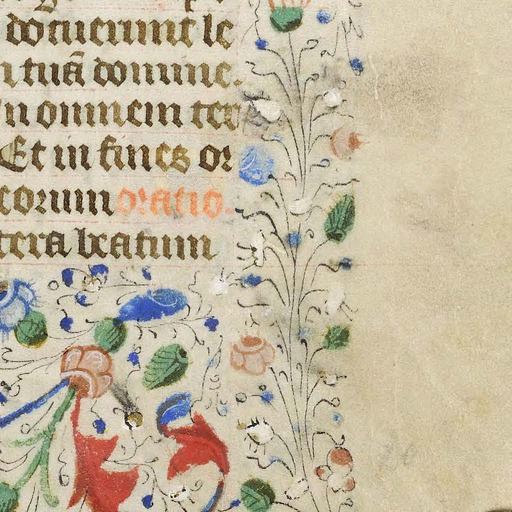 docuerunt le
tuā domine.
omnem ter
Et in fines or
corum oratio.
tera beatum